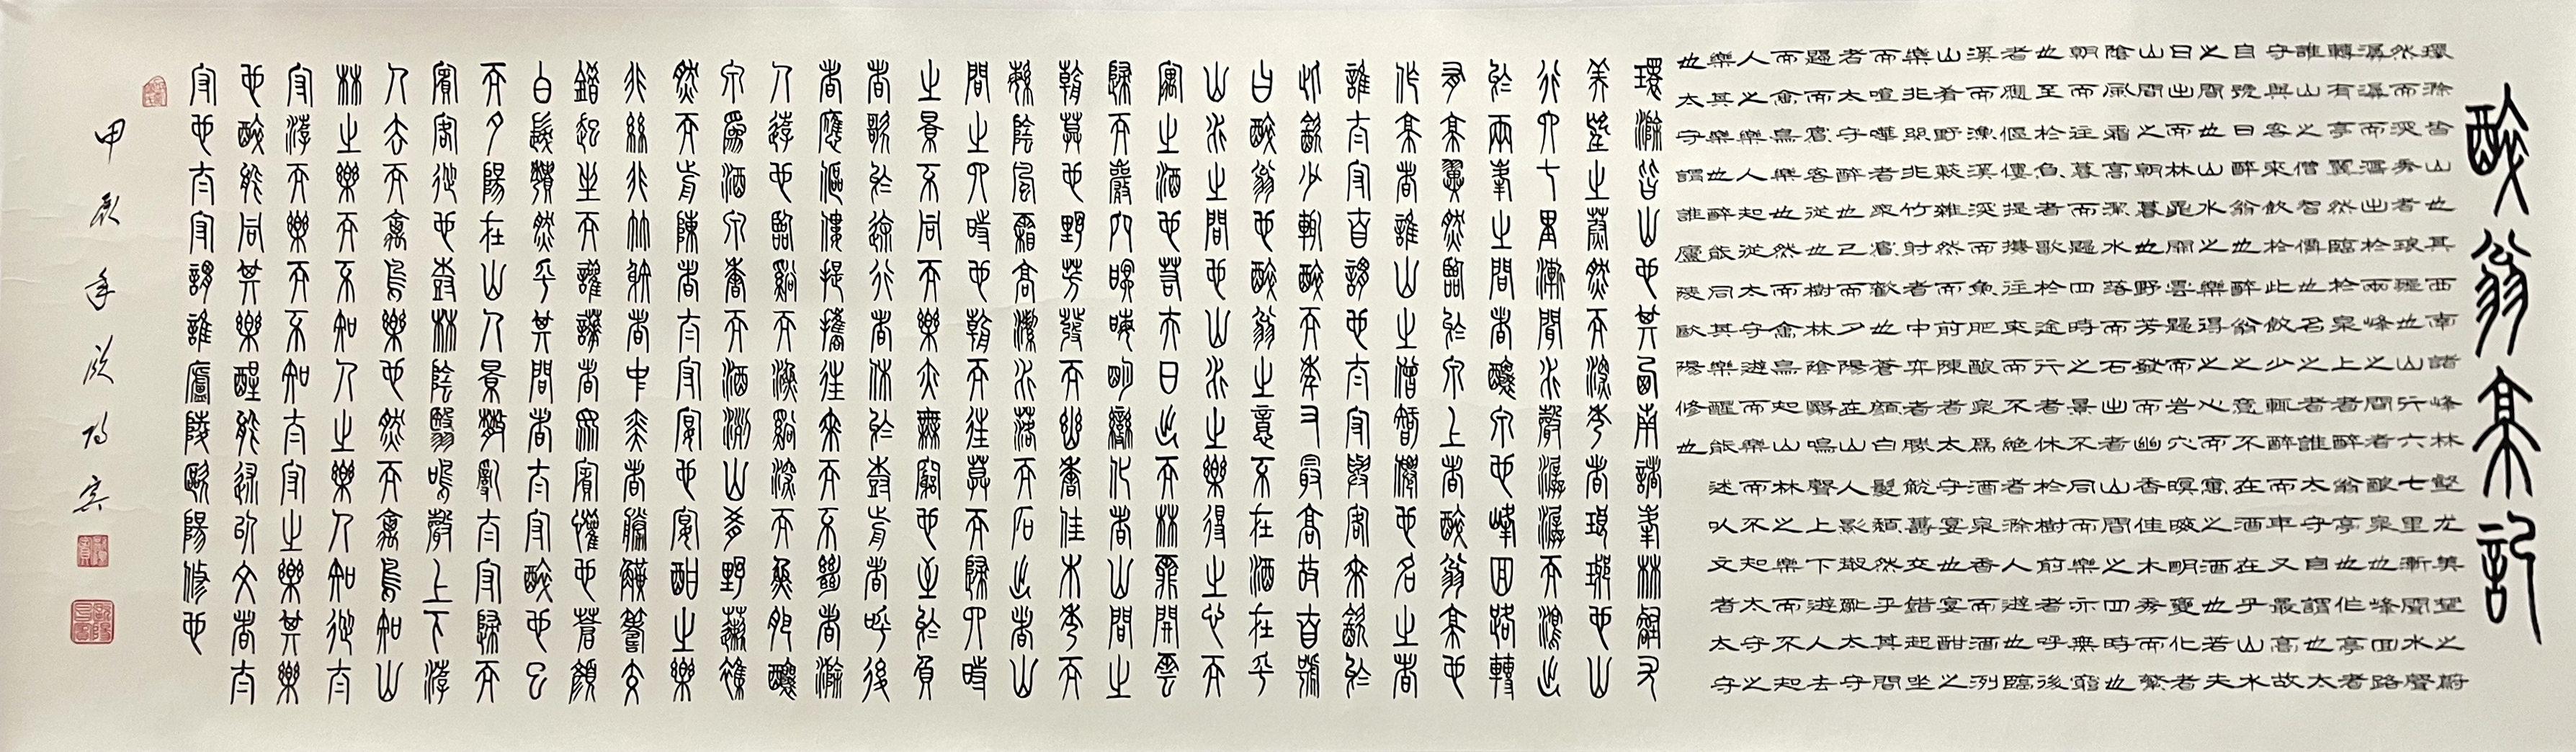 醉翁亭記
環滁皆山也其西南諸峰林壑尤美望之蔚
然而深秀者琅琊也山行六七里漸聞水聲
潺潺而瀉出於兩峰之間者釀泉也峰回路
轉有亭翼然臨於泉上者醉翁亭也作亭者
誰山之僧智僊也名之者誰太守自謂也太
守與客來飲於此飲少輒醉而年又最高故
自號曰醉翁也醉翁之意不在酒在乎山水
之間也山水之樂得之心而寓之酒也若夫
日出而林霏開雲歸而岩穴暝晦明變化者
山間之朝暮也野芳發而幽香佳木秀而繁
陰風霜高潔水落而石出者山間之四時也
朝而往暮而歸四時之景不同而樂亦無窮
也至於負者歌於途行者休於樹前者呼後
者應傴僂提攜往來而不絕者滁人遊也臨
溪而漁溪深而魚肥釀泉為酒泉香而酒洌
山肴野蔌雜然而前陳者太守宴也宴酣之
樂非絲非竹射者中弈者勝觥籌交錯起坐
而喧嘩者眾賓歡也蒼顏白髮頹然乎其間
者太守醉也已而夕陽在山人影散亂太守
歸而賓客從也樹林陰翳鳴聲上下遊人去
而禽鳥樂也然而禽鳥知山林之樂而不知
人之樂人知從太守遊而樂而不知太守之
樂其樂也醉能同其樂醒能述以文者太守
也太守謂誰廬陵歐陽修也
環滁皆山也其西南諸峯林壑尤
美望之蔚然而深秀者琅琊也山
行六七里漸聞水聲潺潺而瀉出
於兩峯之間者釀泉也峯回路轉
有亭翼然臨於泉上者醉翁亭也
作亭者誰山之僧智僊也名之者
誰太守自謂也太守與客來飲於
此飲少輒醉而年又最高故自號
曰醉翁也醉翁之意不在酒在乎
山水之間也山水之樂得之心而
寓之酒也若夫日出而林霏開雲
歸而巖穴暝晦明變化者山間之
朝暮也野芳發而幽香佳木秀而
繁陰風霜高潔水落而石出者山
間之四時也朝而往暮而歸四時
之景不同而樂亦無窮也至於負
者歌於途行者休於樹前者呼後
者應傴僂提攜往來而不絕者滁
人遊也臨谿而漁谿深而魚肥釀
泉為酒泉香而酒洌山肴野蔌雜
然而前陳者太守宴也宴酣之樂
非絲非竹射者中弈者勝觥籌交
錯起坐而諠譁者眾賓懽也蒼顏
白髮頹然乎其間者太守醉也已
而夕陽在山人影散亂太守歸而
賓客從也樹林陰翳鳴聲上下遊
人去而禽鳥樂也然而禽鳥知山
林之樂而不知人之樂人知從太
守遊而樂而不知太守之樂其樂
也醉能同其樂醒能述以文者太
守也太守謂誰廬陵歐陽修也
甲辰年欧阳宾